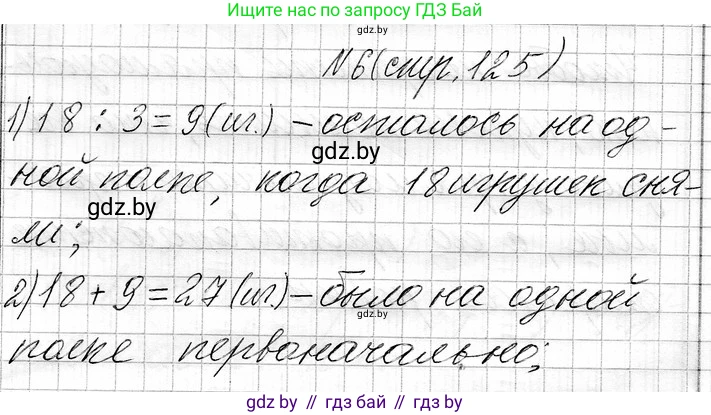 Ищите нас по запросу ГДЗ Бай
gdz.by
N6(стр. 125)
1) 18 : 3 = 9(иг.) – осталось на од-
gdz.by
ной полке, когда 18 игрушек сня-
gdz.by
ли;
2) 18 + 9 = 27 (иг) – было на одной
gdz.by
полке первоначально;
gdz.by // гдз бай // gdz.by